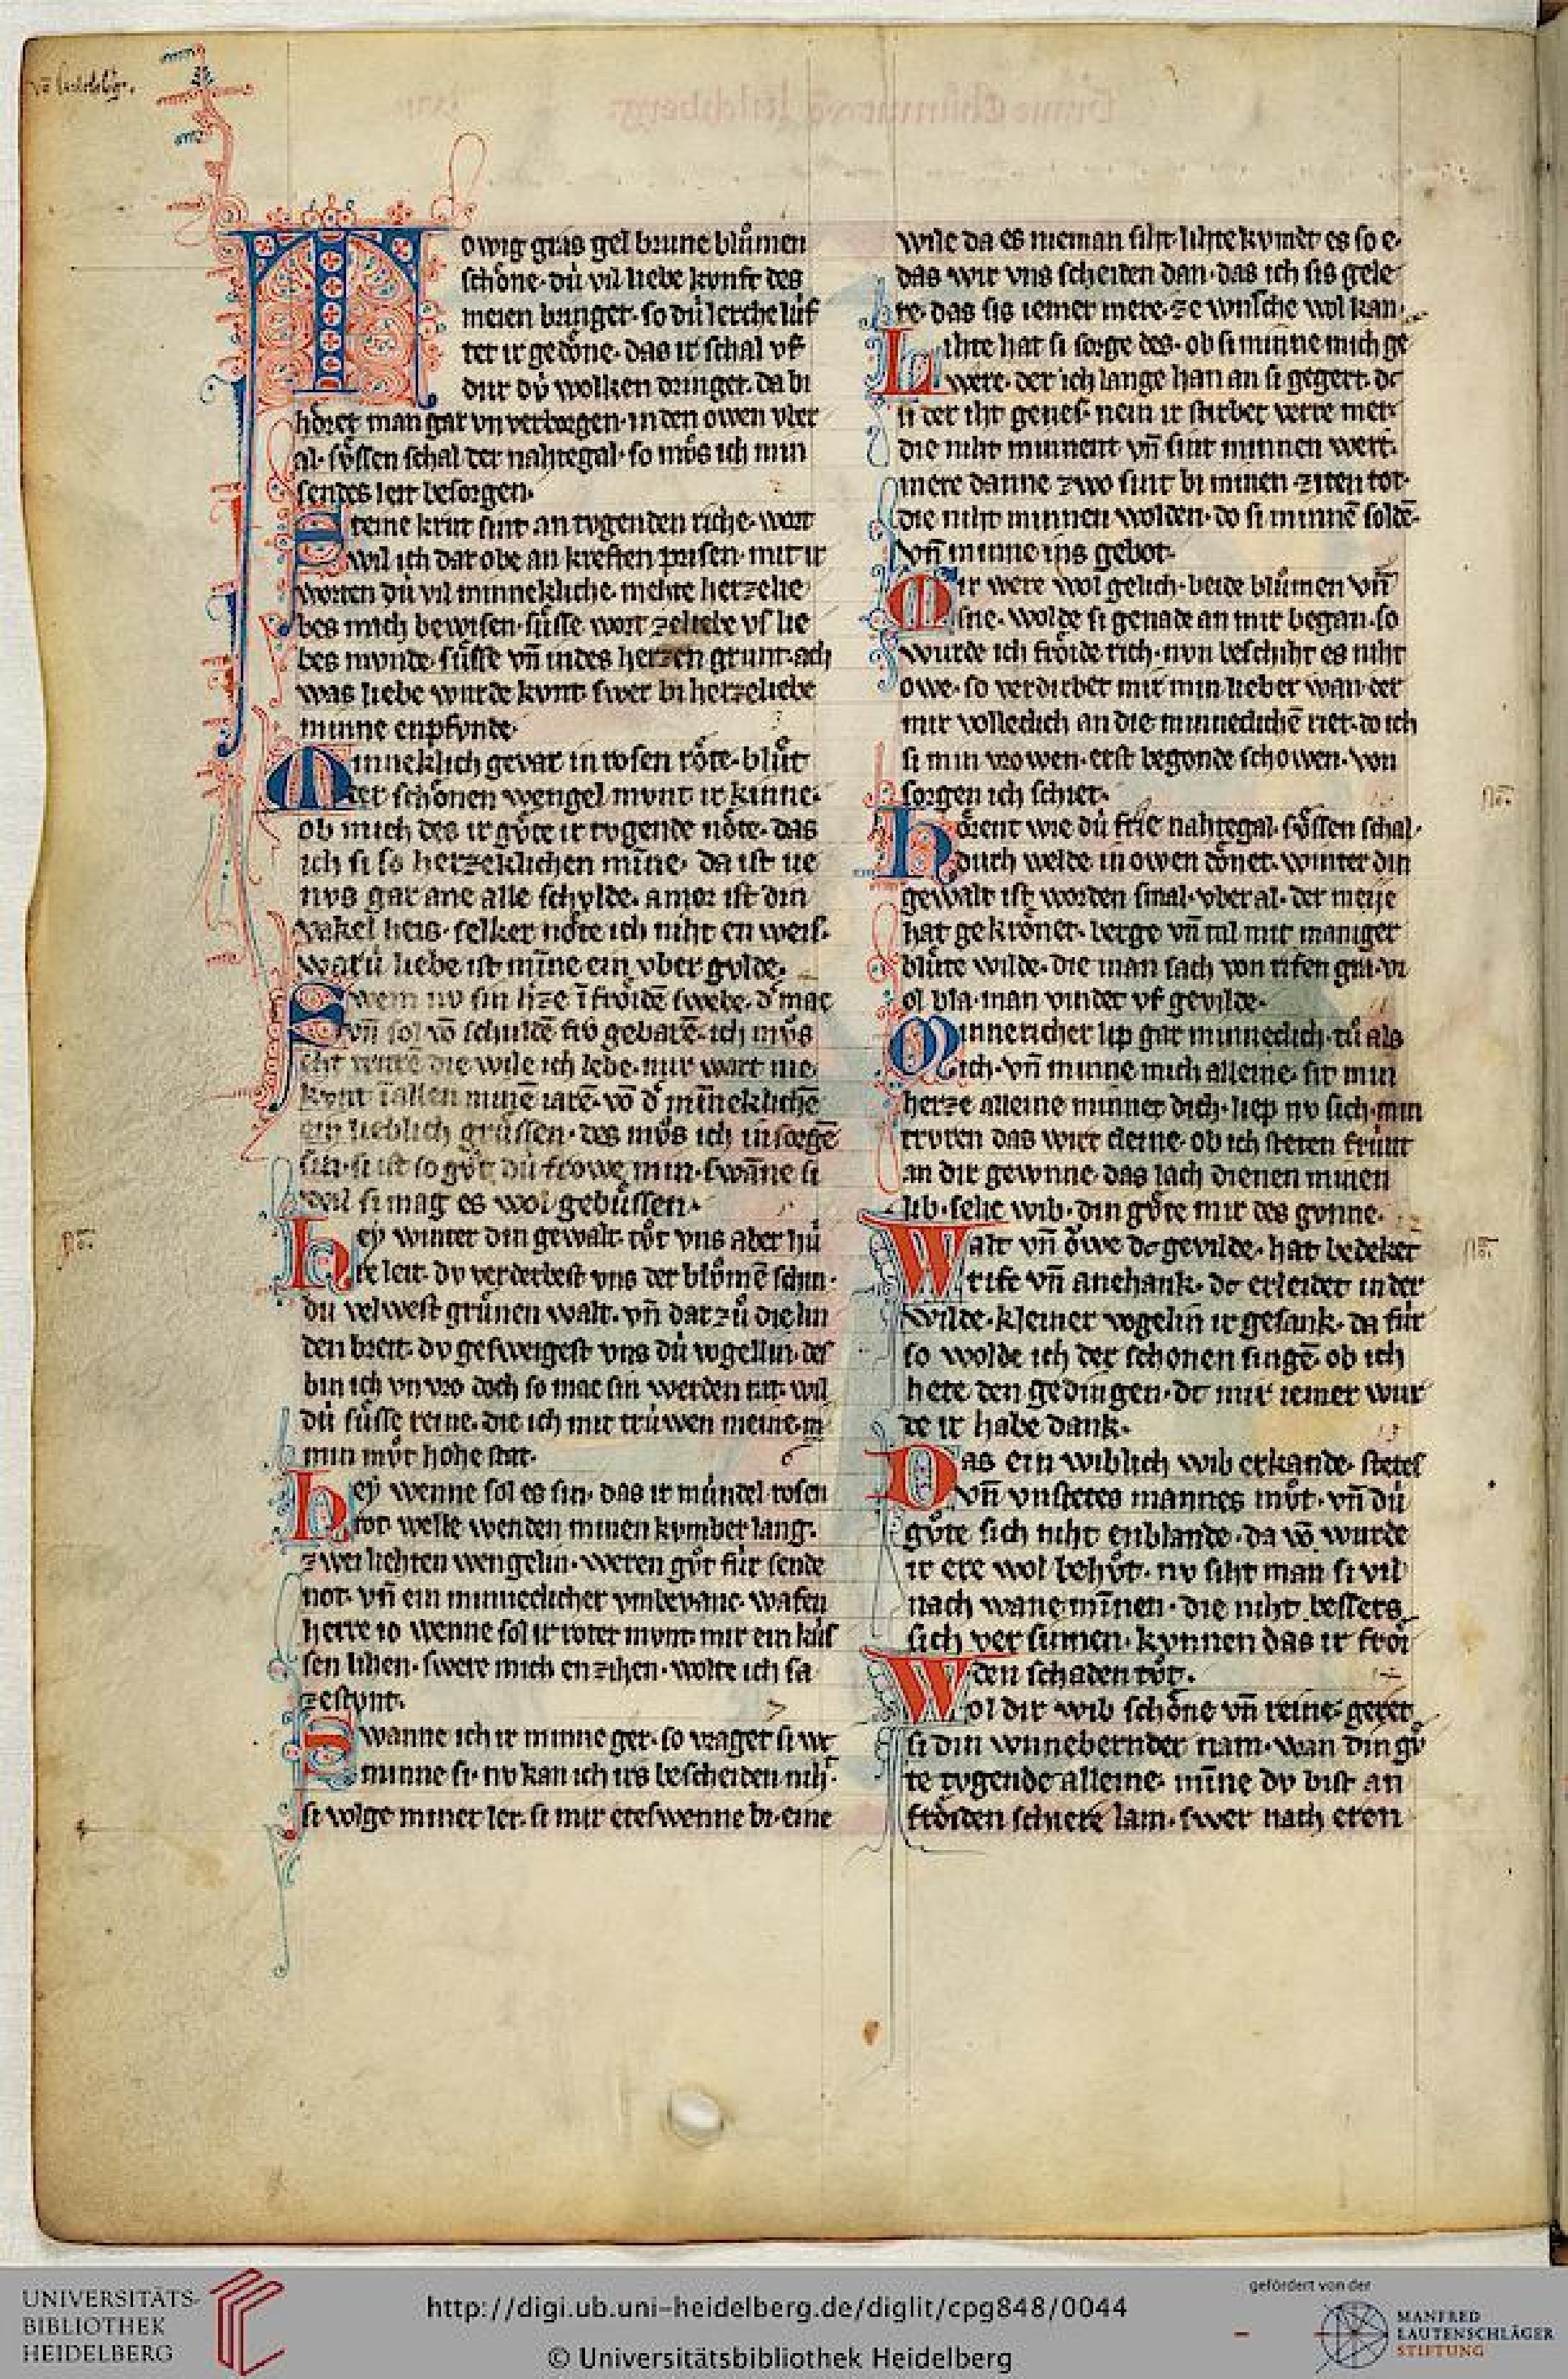 Towig gras gel brune blůmen
schöne. dú vil liebe kvnft des
meien bringet. so dú lerche lúf
tet ir gedöne. das ir schal vf
dur dú wolken dringet. da bi
höret man gar vnverborgen. in den owen vber
al. sv̊ssen schal der nahtegal. so mv̊s ich min
sendes leit besorgen.
Steine krut sint an tvgenden riche. wort
wil ich dar obe an kreften prisen. mit ir
worten dú vil minnekliche. mehte herzelie
bes mich bewisen. sůsse wort ze liebe vs lie
bes mvnde. sůsse vn̄ in des herzen grunt. ach
was liebe wurde kvnt. swer bi herzeliebe
minne enpfvnde.
Minneklich gevar in rosen röte. blůt
der schönen wengel mvnt ir kinne.
ob mich des ir gv̊te ir tvgende nöte. das
ich si so herzeklichen mīne. da ist ve
nvs gar ane alle schvlde. amor ist din
vakel heis. selker nöte ich niht en weis.
war ú liebe ist mīne ein vber gvlde.
Swem nv sin h'ze ī fröidē swebe. d' mac
vn̄ sol vō schuldē frö gebarē. ich mv̊s
die wile ich lebe. mir wart nie
kvnt ī allen minē iarē. vō d' mīneklichē
ein lieblich grüssen. des mv̊s ich in sorgē
sin. si ist so gv̊t dú frowe min. swāne si
wil si mag es wol gebůssen.
Hey winter din gewalt. tv̊t vns aber hú
re leit. dv verderbest vns der blv̊mē schin.
du velwest grůnen walt. vn̄ dar zů die lin
den breit. dv gesweigest vns dú vogellin. des
bin ich vnvro doch so mac sin werden rat. wil
dú sůsse reine. die ich mit trúwen meine. in
min mv̊t hohe stat.
Hey wenne sol es sin. das ir múndel rosen
rot. welle wenden minen kvmber lang.
zwei liehten wengelin. weren gv̊t fúr sende
not. vn̄ ein minneclicher vmbevanc. wafen
herre io wenne sol ir roter mvnt. mir ein kús
sen lihen. swere mich en zihen. wolte ich sa
zestvnt.
Swanne ich ir minne ger. so vraget si wc
minne si. nv kan ich irs bescheiden niht.
si volge miner ler. si mir eteswenne bi. eine
wile da es nieman siht. lihte kvmet es so e.
das wir vns scheiden dan. das ich sis gele
re. das sis iemer mere. ze wnsche wol kan.
Lihte hat si sorge des. ob si minne mich ge
were. der ich lange han an si gegert. dc
si der iht genes. nein ir stirbet verre mer.
die niht minnent vn̄ sint minnen wert.
mere danne zwo sint bi minen ziten tot.
die niht minnen wolden. do si minnē soldē.
vn̄ minne ins gebot.
Mir were wol gelich. beide blůmen vn̄
sne. wolde si genade an mir began. so
wurde ich fröide rich. nvn beschiht es niht
owe. so verdirbet mir min lieber wan. der
mir volleclich an die minneclichē riet. do ich
si min vrowen. erst begonde schowen. von
sorgen ich schiet.
Hörent wie dú frie nahtegal. sv̊ssen schal.
durh welde in owen dönet. winter din
gewalt ist worden smal. vberal. der meije
hat gekrönet. berge vn̄ tal mit maniger
blůte wilde. die man sach von rifen gra. vi
ol bla. man vindet vf gevilde.
Minnericher lip gar minneclich. tů als
ich. vn̄ minne mich alleine. sit min
herze alleine minnet dich. liep nv sich. min
truren das wirt cleine. ob ich steten frúnt
an dir gewnne. das lach dienen minen
lib. selic wib. din gv̊te mir des gvnne.
Walt vn̄ öwe dc gevilde. hat bedeket
rife vn̄ anehank. dc erleidet in der
wilde. kleiner vogelin ir gesank. da fúr
so wolde ich der schonen singē. ob ich
hete den gedingen. dc mir iemer wur
de ir habe dank.
Das ein wiblich wib erkande. stetes
vn̄ vnstetes mannes mv̊t. vn̄ dú
gv̊te sich niht enblande. da vō wurde
ir ere wol behv̊t. nv siht man si vil
nach wane mīnen. die niht bessers
sich versinnen. kvnnen das ir fröi
den schaden tv̊t.
Wol dir wib schöne vn̄ reine. geret
si din wnnebernder nam. wan din gv̊
te tvgende alleine. mīne dv bist an
fröiden schiere lam. swer nach eren
UNIVERSITÄTS-
BIBLIOTHEK
HEIDELBERG
http://digi.ub.uni-heidelberg.de/diglit/cpg848/0044
© Universitätsbibliothek Heidelberg
gefördert von der
MANFRED
LAUTENSCHLÄGER
STIFTUNG